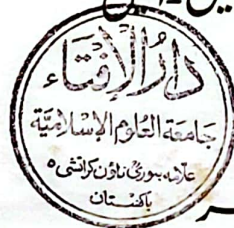 دَارُ الْإِفْتَاء
جَامِعَةُ الْعُلُومِ الْإِسْلَامِيَّة
علامہ بنوری ٹاؤن کراتشی ۵
باكستان